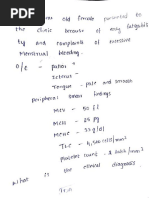 old female presented to
the clinic because of easy fatigabili
ty and complaints of excessive
Menstrual bleeding.
O/E - pallor +
Icterus -
Tongue - pale and smooth
peripheral smear findings
MCV - 50 fl
MCH - 25 pg
MCHC - 22 g/dl
TLC - 6,500 cells/mm3
platelet count - 2 lakh/mm3
What is the clinical diagnosis